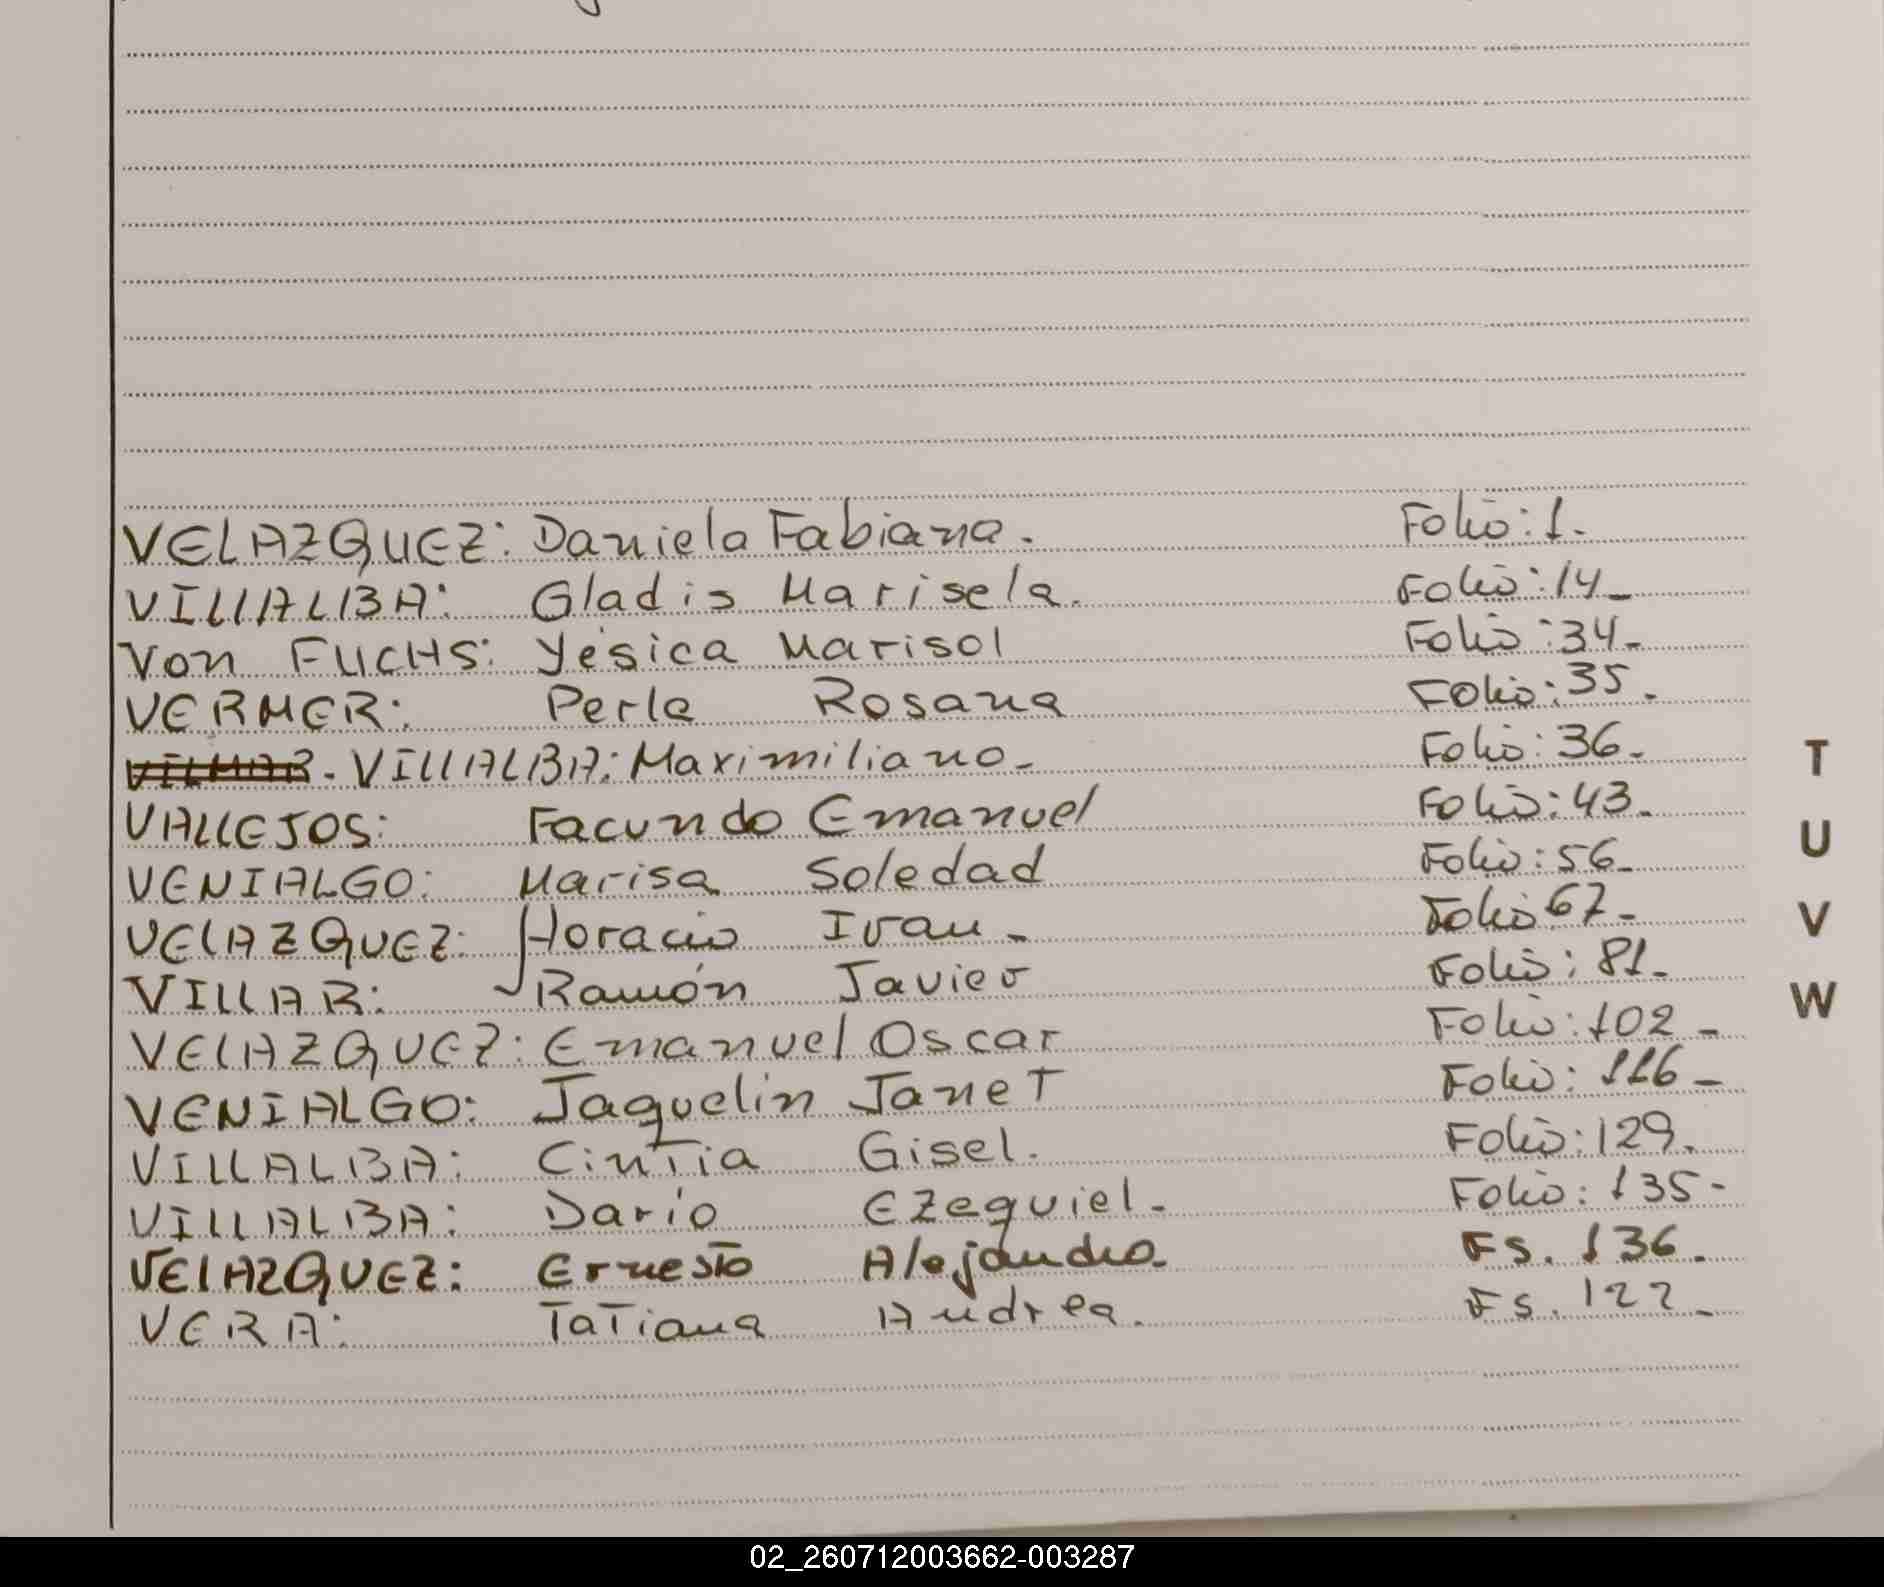 VELAZQUEZ: Daniela Fabiana. Folio: 1.
VILLALBA: Gladis Marisela. Folio: 14_
Von FUCHS: Yésica Marisol Folio: 34_
VERMER: Perla Rosana Folio: 35.
VILMAR. VILLALBA: Maximiliano_ Folio: 36_
VALLEJOS: Facundo Emanuel Folio: 43_
VENIALGO: Marisa Soledad Folio: 56_
VELAZQUEZ: Horacio Ivan_ Folio 67_
VILLAR: Ramón Javier Folio: 81_
VELAZQUEZ: Emanuel Oscar Folio: 102_
VENIALGO: Jaquelin Janet Folio: 116_
VILLALBA: Cintia Gisel. Folio: 129.
VILLALBA: Darío Ezequiel_ Folio: 135-
VELAZQUEZ: Ernesto Alejandro. Fs. 136.
VERA: Tatiana Andrea. Fs. 122_
T
U
V
W
02_260712003662-003287